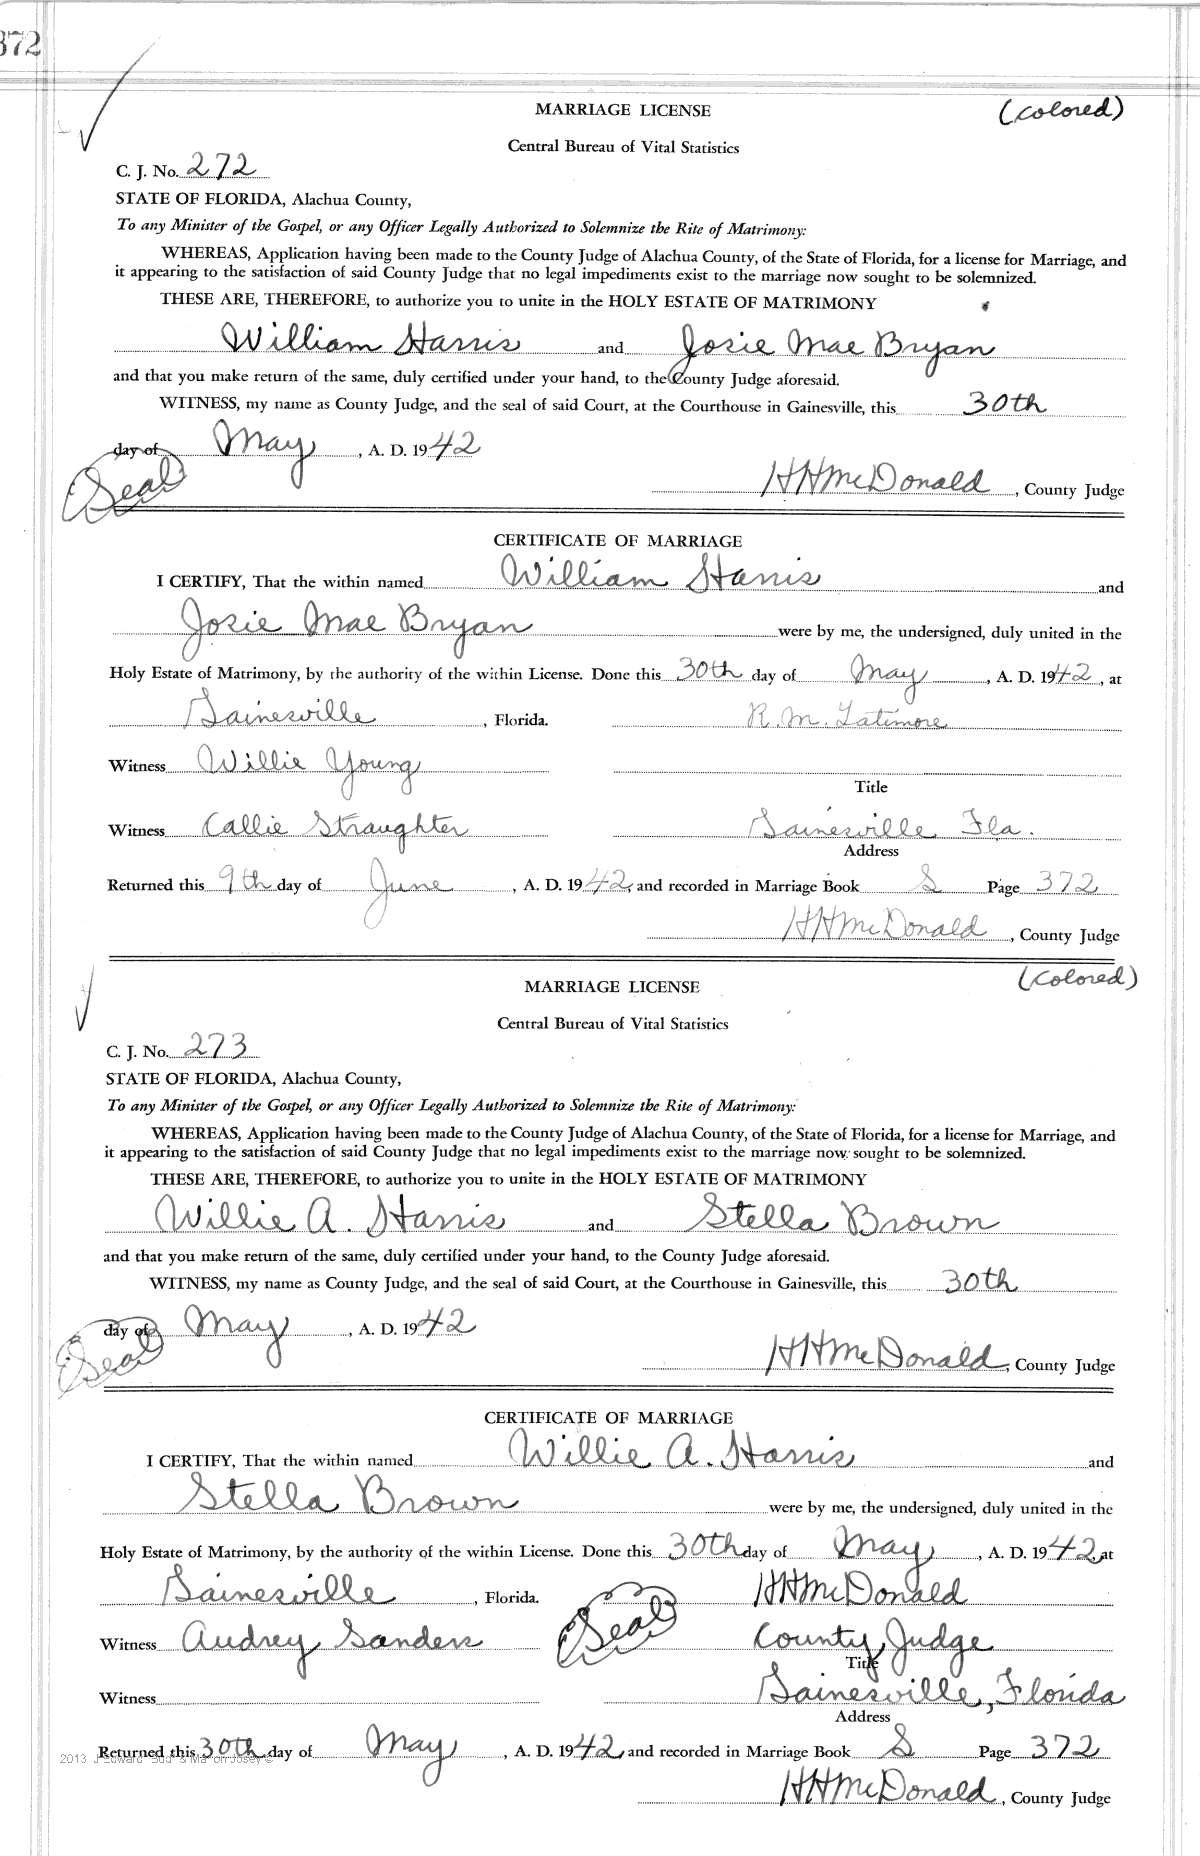 372
MARRIAGE LICENSE (colored)
Central Bureau of Vital Statistics
C. J. No. 272
STATE OF FLORIDA, Alachua County,
To any Minister of the Gospel, or any Officer Legally Authorized to Solemnize the Rite of Matrimony:
WHEREAS, Application having been made to the County Judge of Alachua County, of the State of Florida, for a license for Marriage, and
it appearing to the satisfaction of said County Judge that no legal impediments exist to the marriage now sought to be solemnized.
THESE ARE, THEREFORE, to authorize you to unite in the HOLY ESTATE OF MATRIMONY
William Harris and Josie Mae Bryan
and that you make return of the same, duly certified under your hand, to the County Judge aforesaid.
WITNESS, my name as County Judge, and the seal of said Court, at the Courthouse in Gainesville, this 30th
day of May, A. D. 1942
(Seal) HHMcDonald, County Judge
CERTIFICATE OF MARRIAGE
I CERTIFY, That the within named William Harris and
Josie Mae Bryan were by me, the undersigned, duly united in the
Holy Estate of Matrimony, by the authority of the within License. Done this 30th day of May, A. D. 1942, at
Gainesville, Florida. R. M. Latimore
Witness Willie Young
Title
Witness Callie Straughter Gainesville Fla.
Address
Returned this 9th day of June, A. D. 1942, and recorded in Marriage Book S Page 372
HHMcDonald, County Judge
MARRIAGE LICENSE (Colored)
Central Bureau of Vital Statistics
C. J. No. 273
STATE OF FLORIDA, Alachua County,
To any Minister of the Gospel, or any Officer Legally Authorized to Solemnize the Rite of Matrimony:
WHEREAS, Application having been made to the County Judge of Alachua County, of the State of Florida, for a license for Marriage, and
it appearing to the satisfaction of said County Judge that no legal impediments exist to the marriage now sought to be solemnized.
THESE ARE, THEREFORE, to authorize you to unite in the HOLY ESTATE OF MATRIMONY
Willie A. Harris and Stella Brown
and that you make return of the same, duly certified under your hand, to the County Judge aforesaid.
WITNESS, my name as County Judge, and the seal of said Court, at the Courthouse in Gainesville, this 30th
day of May, A. D. 1942
(Seal) HHMcDonald, County Judge
CERTIFICATE OF MARRIAGE
I CERTIFY, That the within named Willie A. Harris and
Stella Brown were by me, the undersigned, duly united in the
Holy Estate of Matrimony, by the authority of the within License. Done this 30th day of May, A. D. 1942, at
Gainesville, Florida. (Seal) HHMcDonald
Witness Audrey Sanders County Judge
Title
Witness Gainesville, Florida
Address
Returned this 30th day of May, A. D. 1942, and recorded in Marriage Book S Page 372
2013 J Edward
HHMcDonald, County Judge